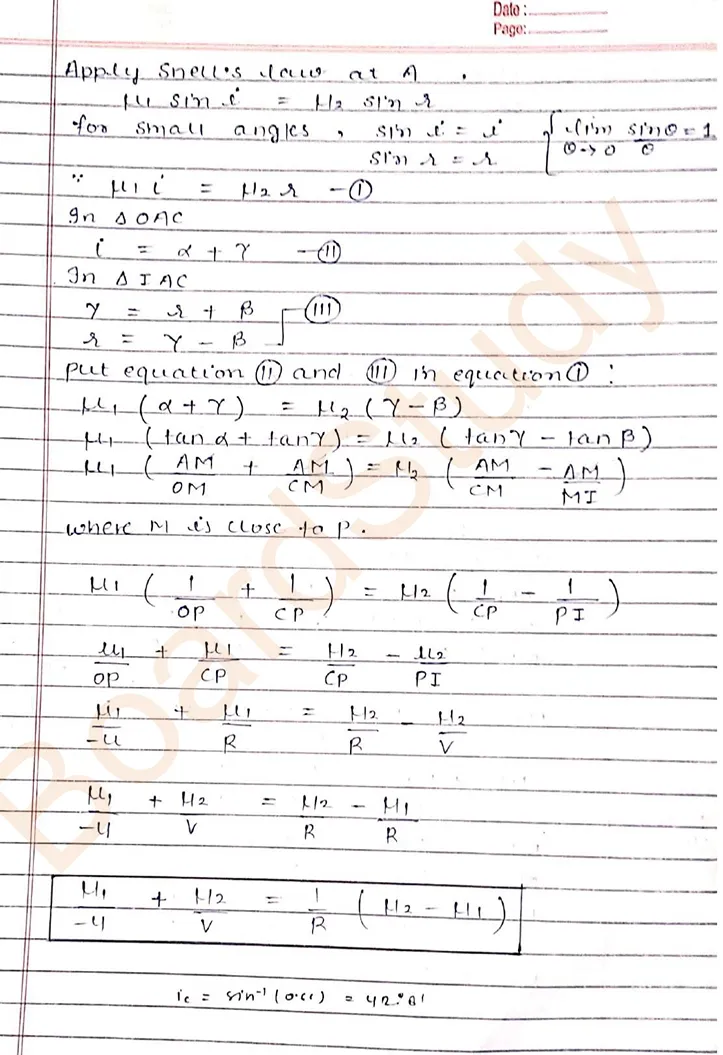 Date :
Page:
Apply snell's law at A .
μ1 sin i = μ2 sin r
for small angles , sin i = i { lim θ→0 sinθ/θ = 1
sin r = r
∵ μ1 i = μ2 r —(I)
In Δ OAC
i = α + γ —(II)
In Δ IAC
γ = r + β —(III)
r = γ - β
put equation (II) and (III) in equation (I) :
μ1 (α + γ) = μ2 (γ - β)
μ1 (tan α + tan γ) = μ2 (tan γ - tan β)
μ1 ( AM/OM + AM/CM ) = μ2 ( AM/CM - AM/MI )
where M is close to p.
μ1 ( 1/OP + 1/CP ) = μ2 ( 1/CP - 1/PI )
μ1/OP + μ1/CP = μ2/CP - μ2/PI
μ1/-u + μ1/R = μ2/R - μ2/V
μ1/-u + μ2/V = μ2/R - μ1/R
μ1/-u + μ2/V = 1/R ( μ2 - μ1 )
ic = sin⁻¹ (
BoardStudy